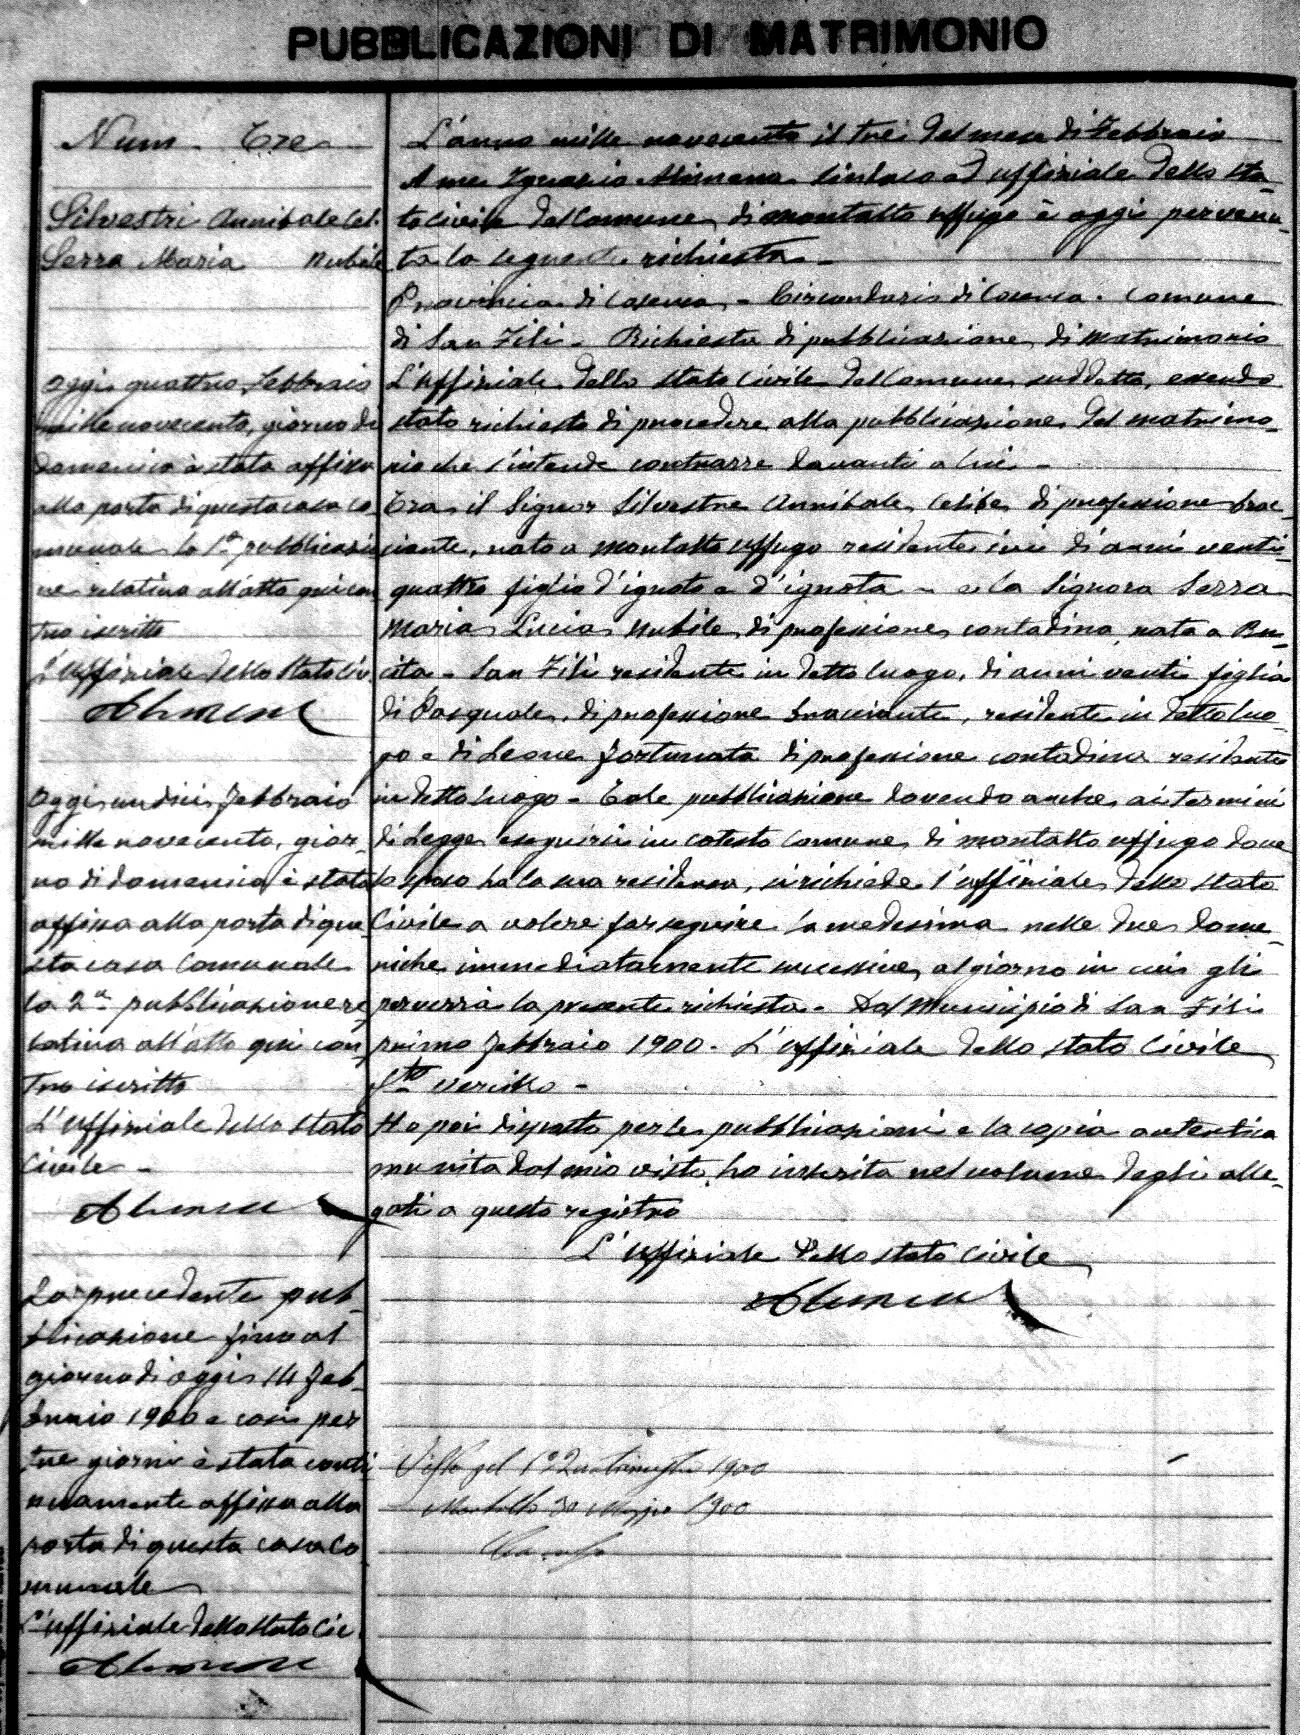 PUBBLICAZIONI DI MATRIMONIO
Num. Tre
Silvestri Annibale Cel.
Serra Maria Nubile
Oggi quattro Febbraio
mille novecento, giorno di
domenica è stata affissa
alla porta di questa casa co
munale la 1ª pubblicazio
ne relativa all'atto qui con
tro iscritto
L'Uffiziale dello Stato Civ
Oggi undici Febbraio
mille novecento, gior-
no di domenica è stata
affissa alla porta di que-
sta casa Comunale
la 2ª pubblicazione re
lativa all'atto qui con
tro iscritto
L'Uffiziale dello Stato
Civile -
La precedente pub-
blicazione fino al
giorno di oggi 14 Feb-
braio 1900 e così per
tre giorni è stata conti
nuamente affissa alla
porta di questa casa Co
munale
L'uffiziale dello Stato Civ.
L'anno mille novecento il tre del mese di Febbraio
A me Ignazio sindaco ed uffiziale dello sta-
to Civile del Comune di Montalto Uffugo è oggi pervenu-
ta la seguente richiesta -
Provincia di Cosenza - Circondario di Cosenza. Comune
di San Fili - Richiesta di pubblicazione di Matrimonio
L'Uffiziale dello Stato Civile del Comune suddetto, essendo
stato richiesto di procedere alla pubblicazione del matrimo-
nio che s'intende contrarre davanti a lui -
Tra il Signor Silvestre Annibale, celibe, di professione brac-
ciante, nato a Montalto Uffugo residente ivi di anni venti-
quattro figlio d'ignoto e d'ignota - e la Signora Serra
Maria Lucia nubile di professione contadina nata a Bu-
cita - San Fili residente in detto luogo, di anni venti figlia
di Pasquale, di professione bracciante, residente in detto luo-
go e di Leone Fortunata di professione contadina residente
in detto luogo - Tale pubblicazione dovendo anche ai termini
di Legge eseguirsi in cotesto Comune di Montalto Uffugo dove
lo sposo ha la sua residenza, si richiede l'uffiziale dello Stato
Civile a volere far seguire la medesima nelle due dome-
niche immediatamente successive al giorno in cui gli
perverrà la presente richiesta - Dal Municipio di San Fili
primo Febbraio 1900 - L'uffiziale dello Stato Civile
Ho poi disposto per le pubblicazioni e la copia autentica
munita dal mio visto, ho inserita nel volume degli alle-
gati a questo registro
L'Uffiziale dello Stato Civile
Visto pel 1° Quatrimestre 1900
Montalto 30 Maggio 1900